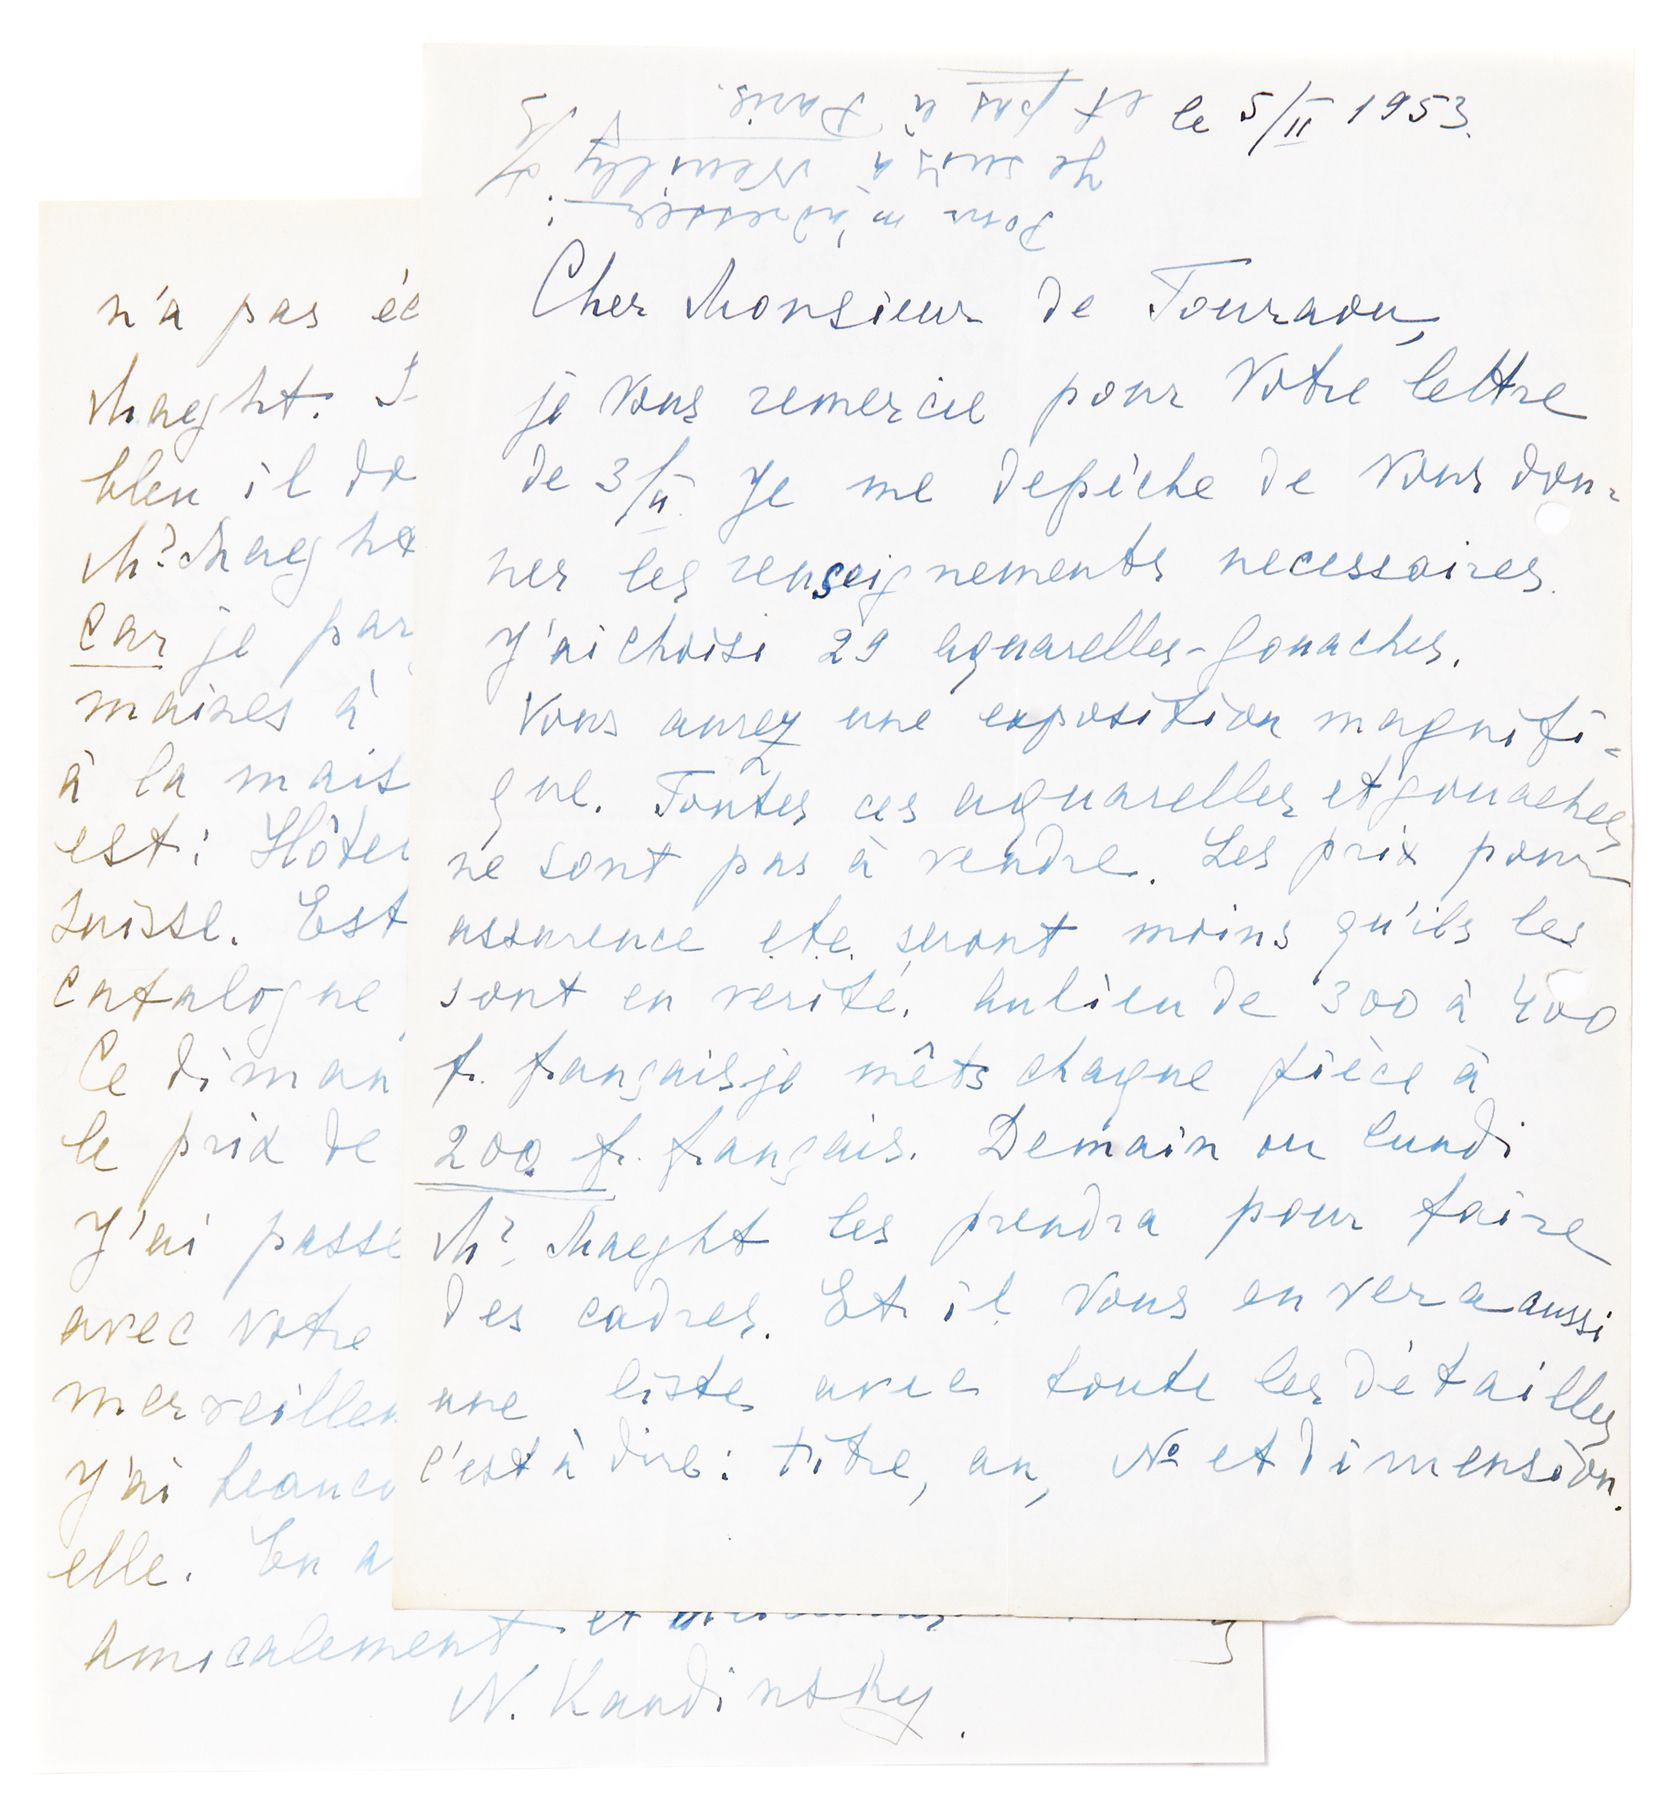 le 5/II 1953.
Pour m'adresser:
Je suis à Neuilly s/S
et pas à Paris.
Cher Monsieur de Touraou,
je Vous remercie pour Votre lettre
de 3/II. Je me depêche de Vous don-
ner les renseignements necessaires.
J'ai choisi 29 aquarelles-gouaches.
Vous aurez une exposition magnifi-
que. Toutes ces aquarelles et gouaches
ne sont pas à vendre. Les prix pour
assurence etc. seront moins qu'ils les
sont en verité. Aulieu de 300 à 400
fr. français je mêts chaque pièce à
200 fr. français. Demain ou lundi
Mr. Maeght les prendra pour faire
des cadres. Et il Vous envera aussi
une liste avec toute les détailles
c'est à dire: titre, an, No et dimension.
n'a pas éc
Maeght. I
bleu il do
Mr. Maeght
Car je par
maines à
à la mais
est: Hôtel
Suisse. Est
catalogue
Ce diman
le prix de
J'ai passé
avec Votre
merveilleu
J'ai beauco
elle. En a
amicalement et
N. Kandinsky.